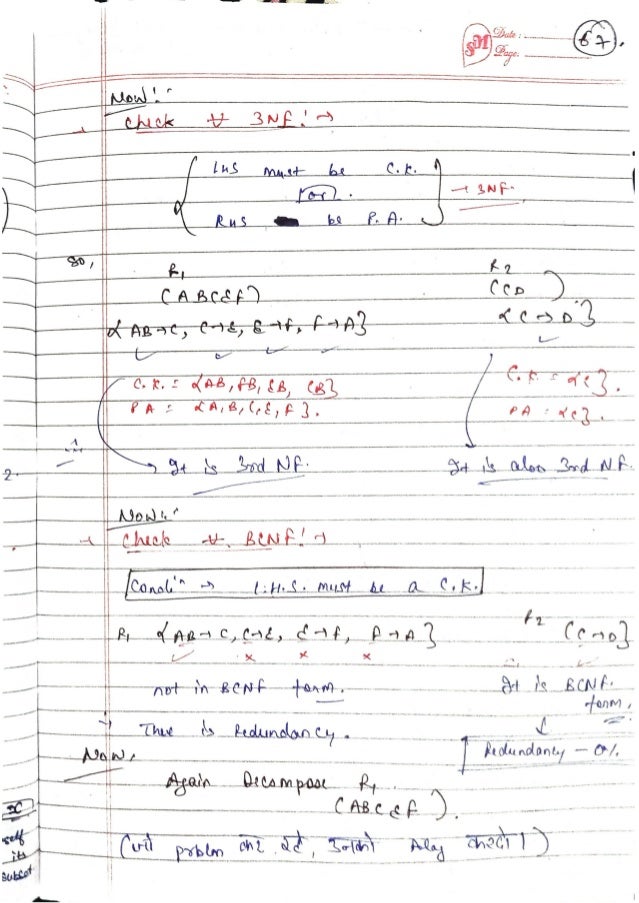 SM Date :
Page.
67.
Now!
Check # 3NF! →
LHS must be C.K.
(or).
RHS be P.A.
→ 3NF.
so,
R1
(ABCEF)
R2
(CD)
{AB→C, C→E, E→F, F→A}
{C→D}
C.K. = {AB, FB, EB, CB}
PA = {A, B, C, E, F}.
C.K. = {C}.
PA = {C}.
It is 3rd NF.
It is also 3rd NF.
2.
Now!
Check #. BCNF! →
Condi'n → L.H.S. must be a C.K.
R1 {AB→C, C→E, E→F, F→A}
R2 {C→D}
✓ × × ×
not in BCNF form.
It is BCNF.
form.
→ There is Redundancy.
Redundancy - 0%.
Now,
Again Decompose R1
(ABCEF).
self
its
subset
(जो problem कर रहे, उनको Alag करदो।)